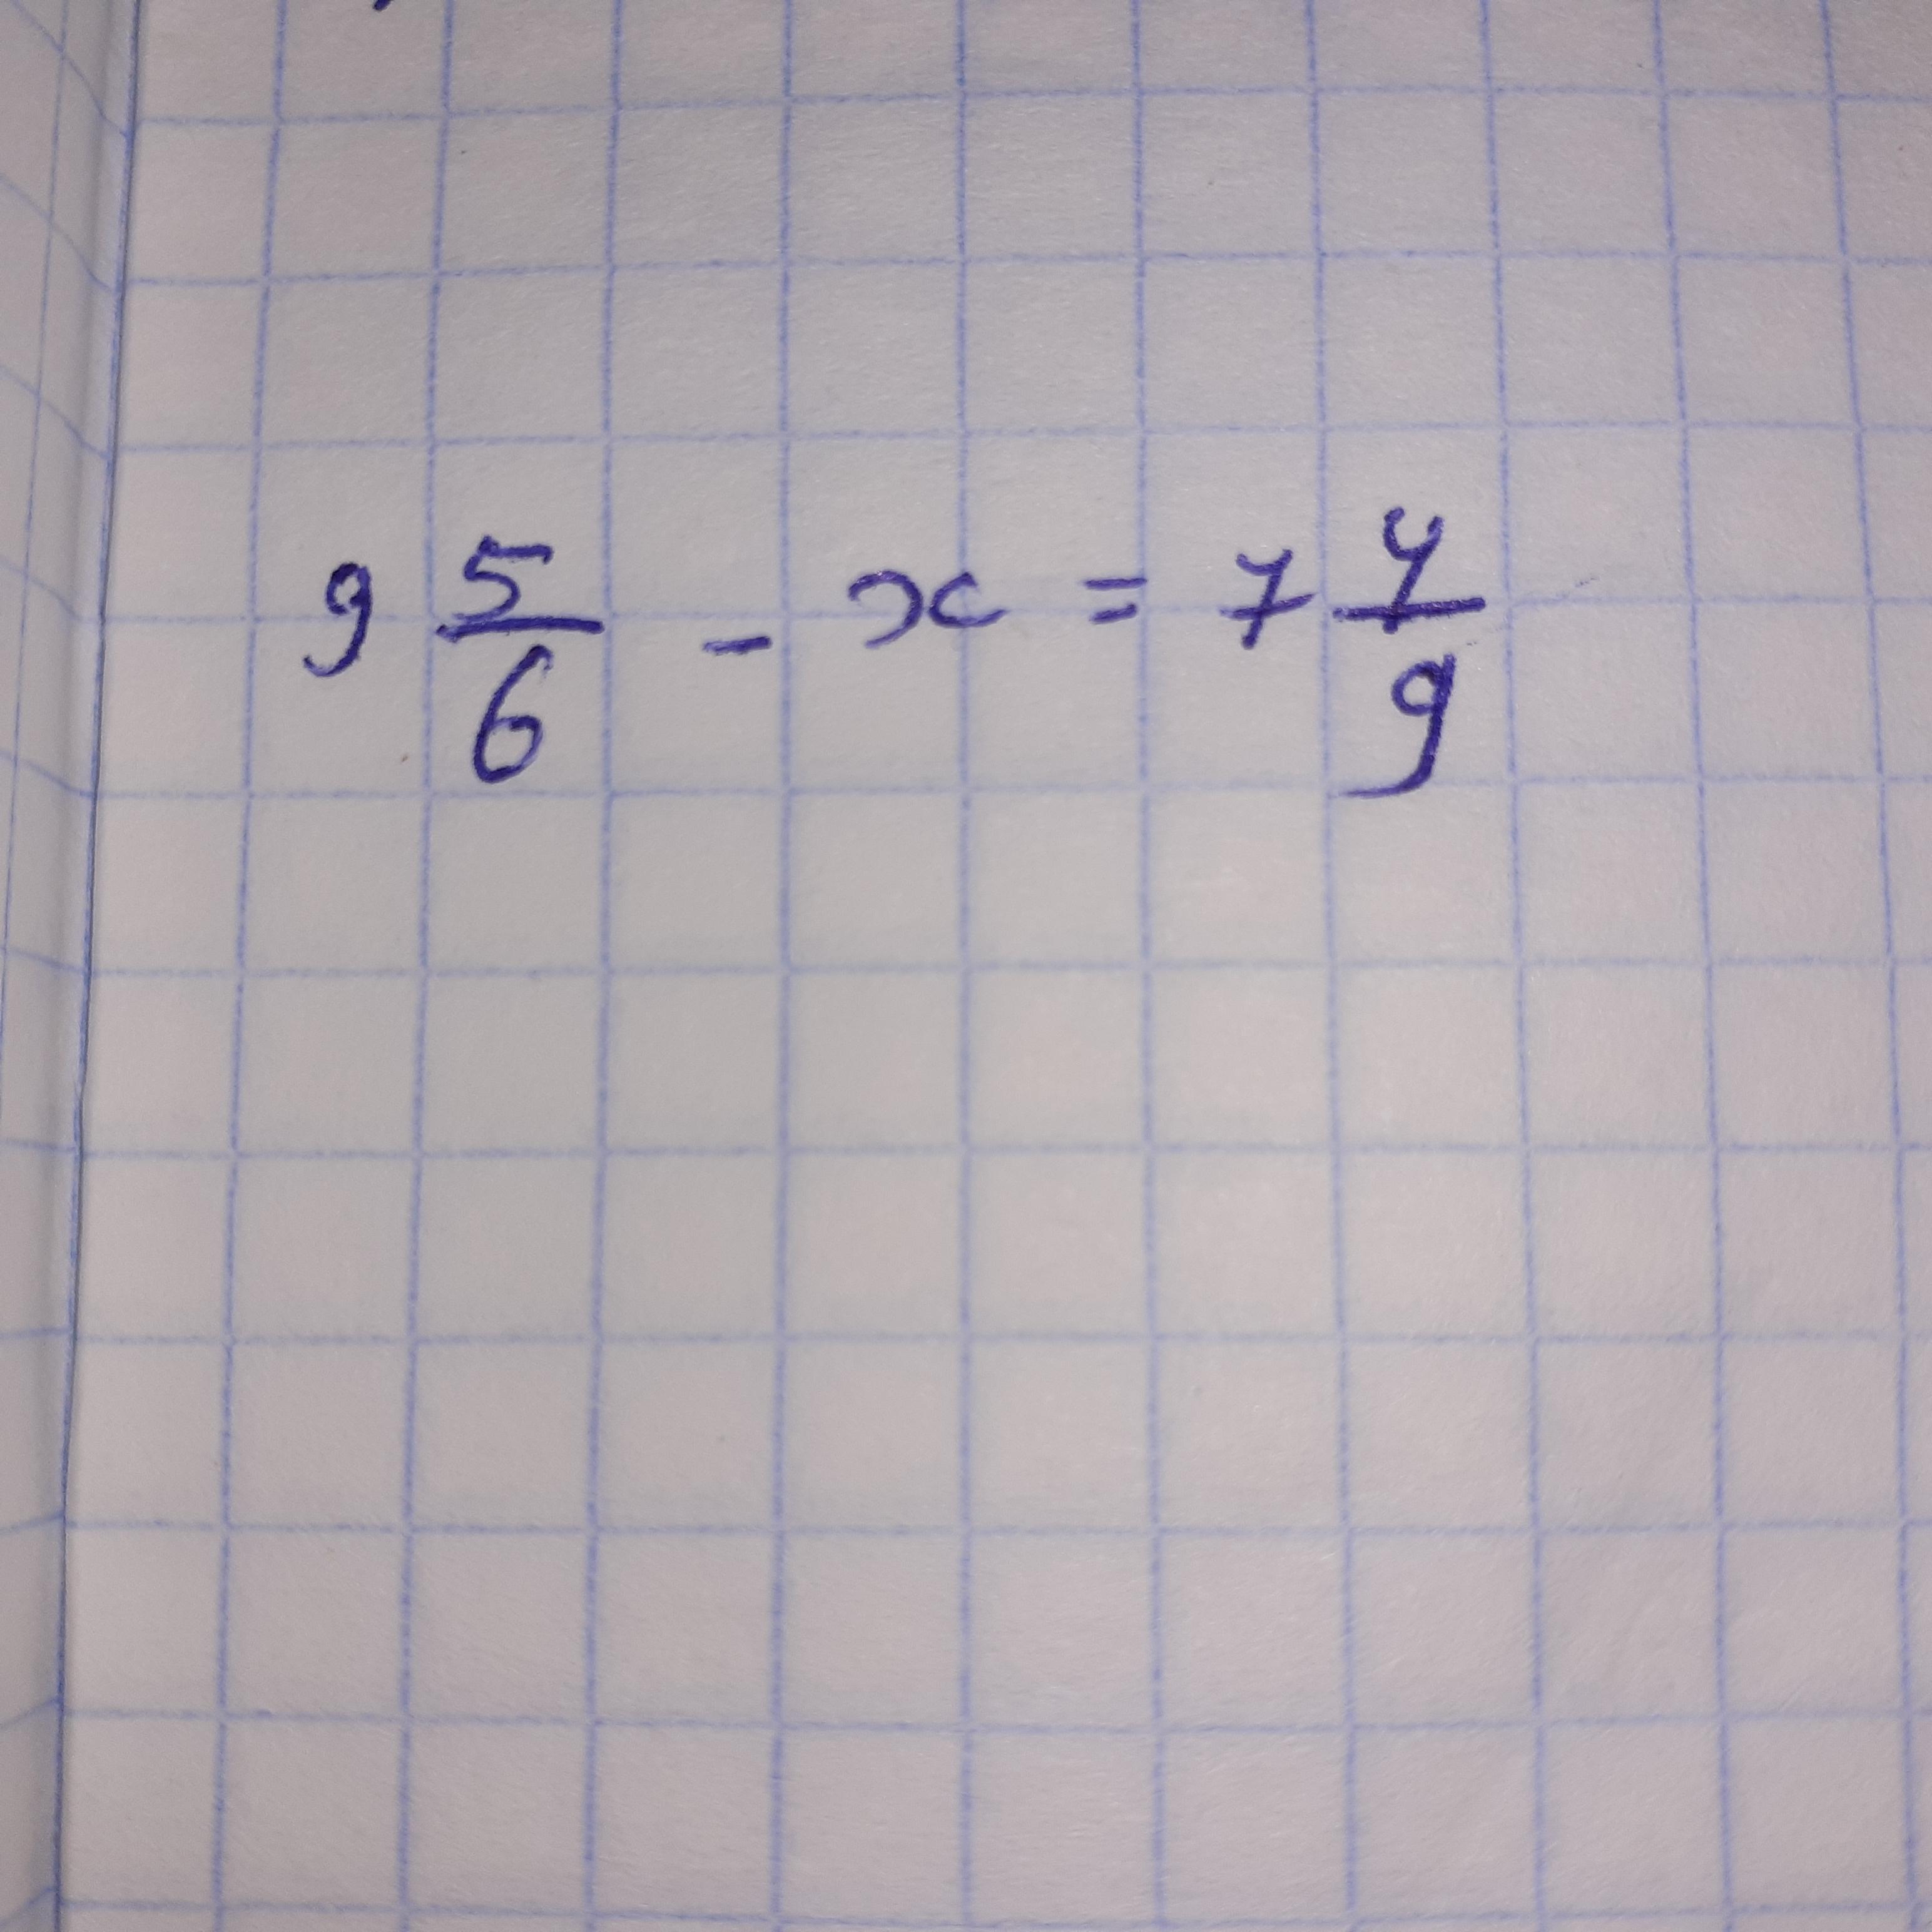 9 5/6 - x = 7 4/9